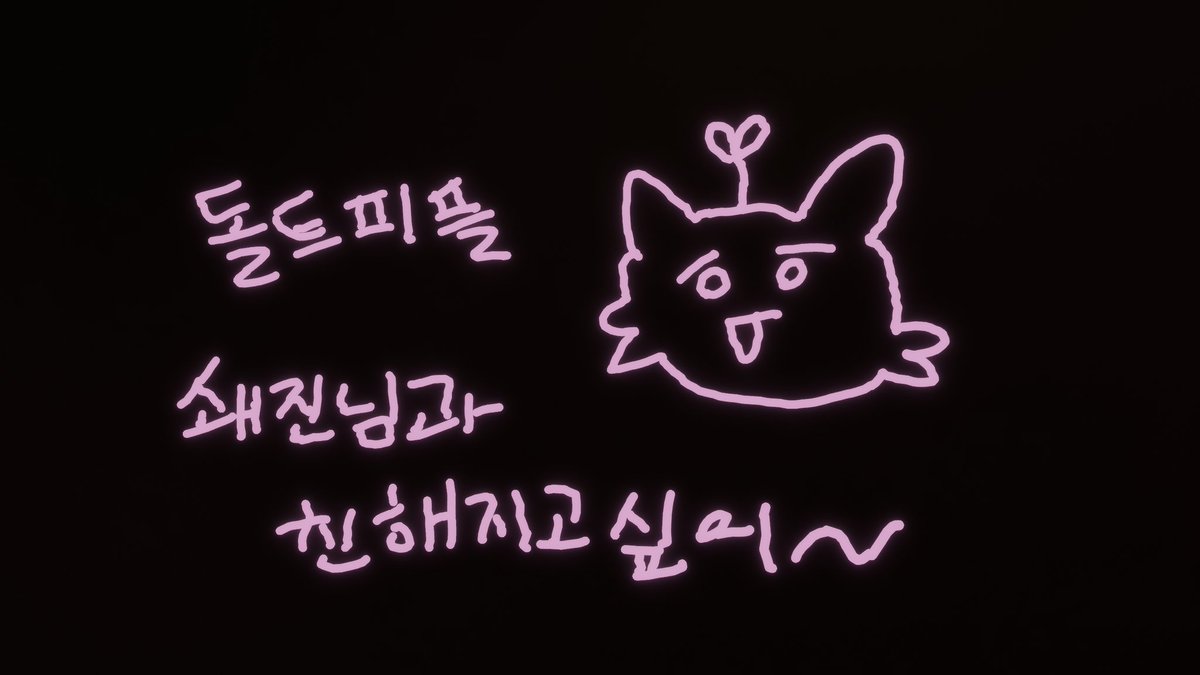 돌트피플
쇄진님과
친해지고싶어~